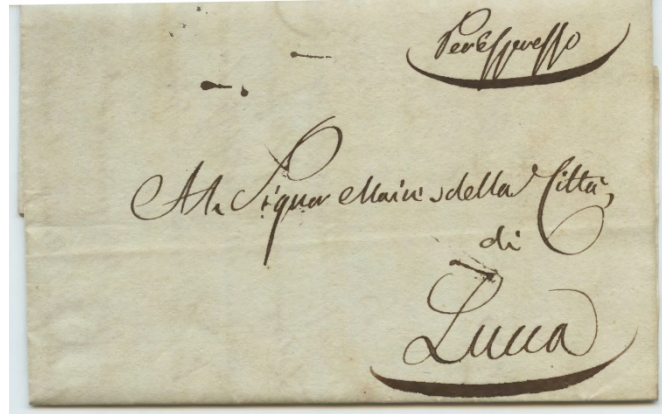 Per Espresso
Al Signor Maire della Città
di
Lucca